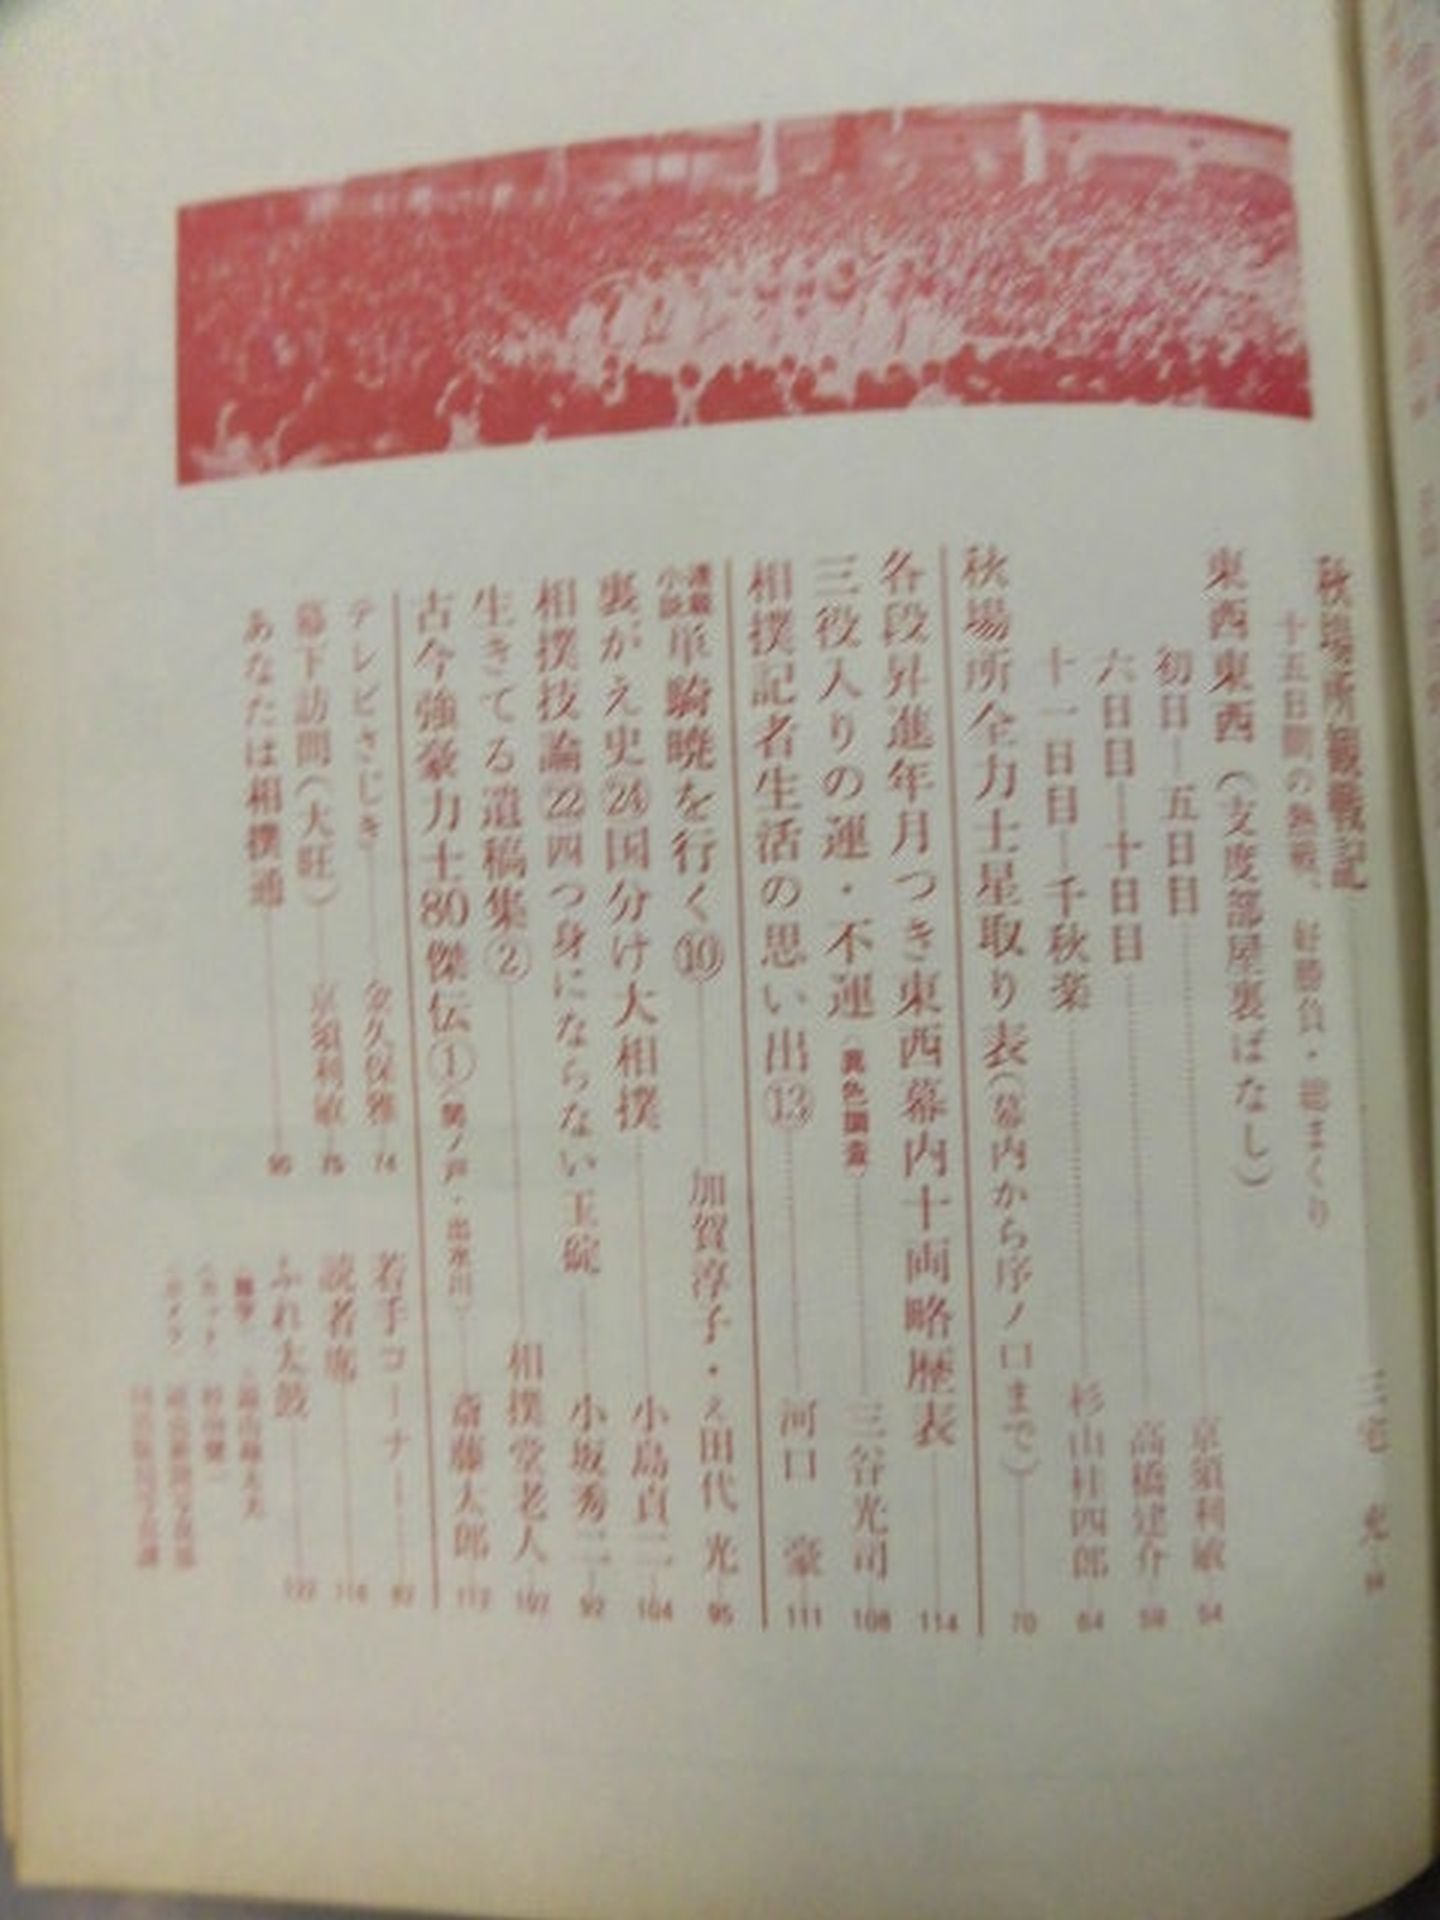 秋場所観戦記 三宅 充
十五日間の熱戦、好勝負・総まくり
東西東西（支度部屋裏ばなし）
初日―五日目 京須利敏 54
六日目―十日目 高橋建介 59
十一日目―千秋楽 杉山桂四郎 64
秋場所全力士星取り表（幕内から序ノ口まで） 70
各段昇進年月つき東西幕内十両略歴表 114
三役入りの運・不運（異色調査） 三谷光司 108
相撲記者生活の思い出⑬ 河口 豪 111
連載小説 単騎暁を行く⑩ 加賀淳子・え田代 光 95
裏がえ史㉔国分け大相撲 小島貞二 104
相撲技論㉒四つ身にならない玉碇 小坂秀二 92
生きてる遺稿集② 相撲堂老人 102
古今強豪力士80傑伝① 斎藤太郎 112
テレビさじき 金久保雅 74
幕下訪問（大旺） 京須利敏 75
あなたは相撲通 90
若手コーナー 82
読者席 118
ふれ太鼓 122